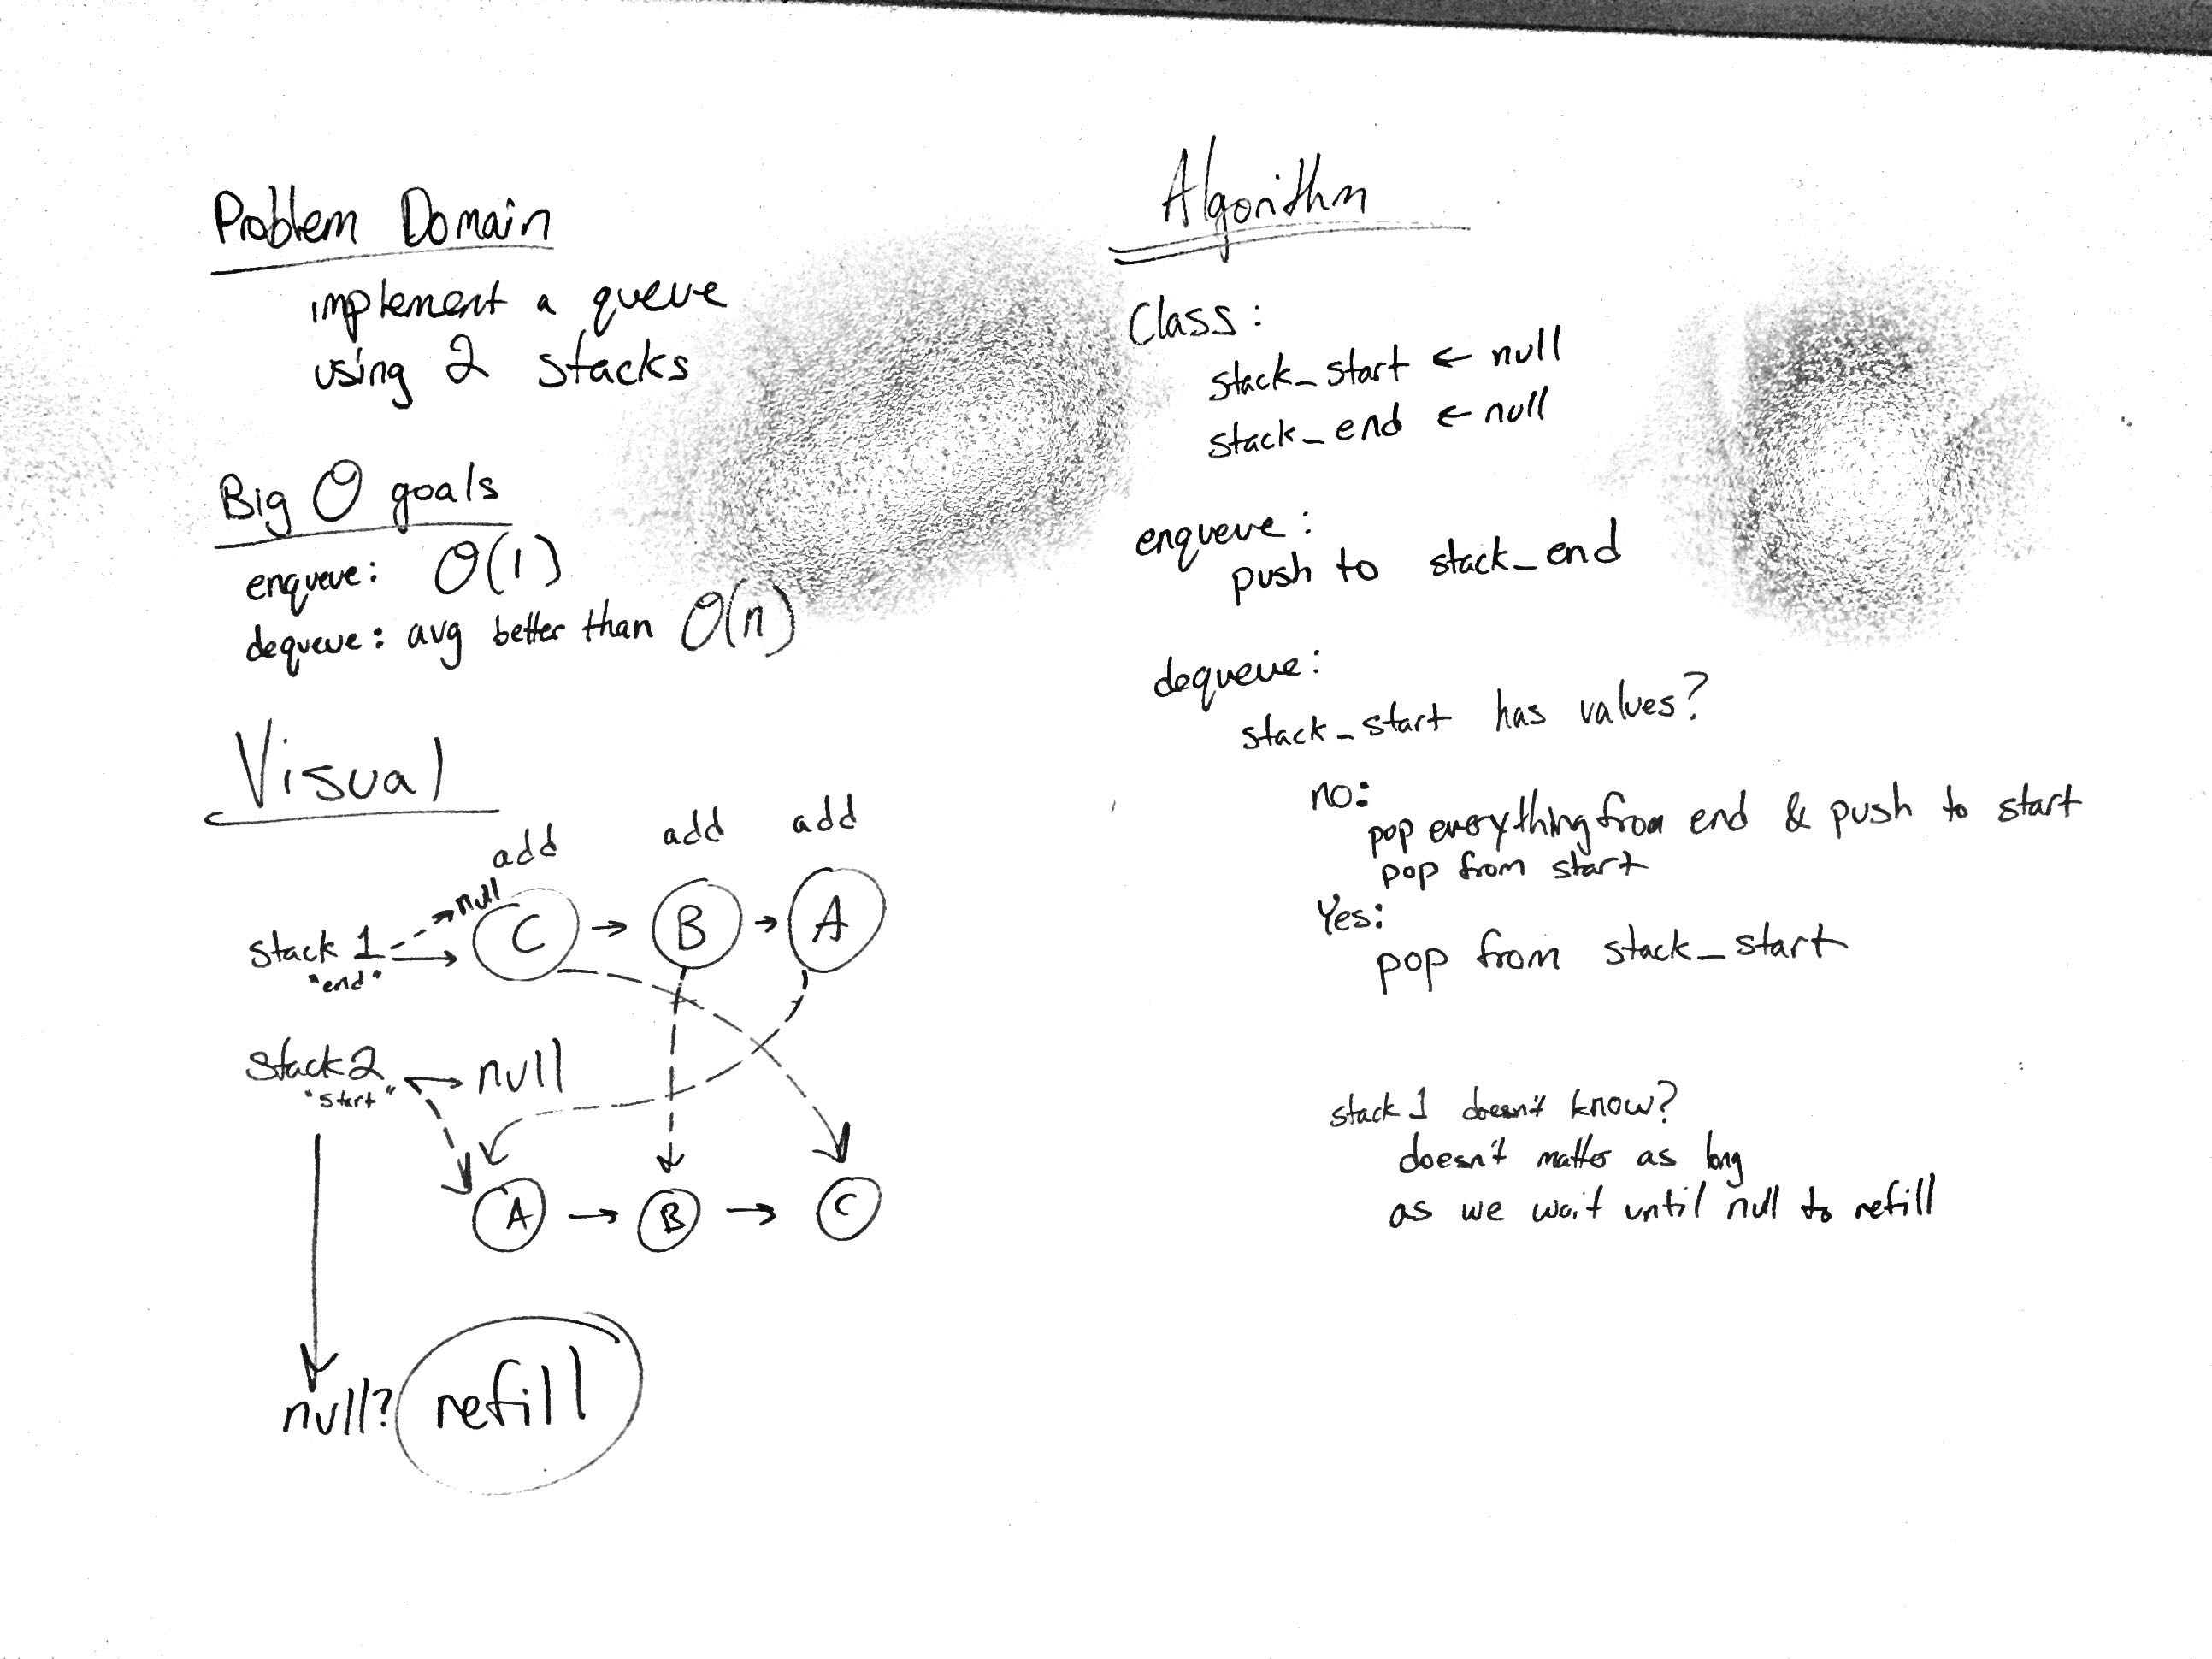 Problem Domain
implement a queue
using 2 stacks
Big O goals
enqueue: O(1)
dequeue: avg better than O(n)
Visual
add add add
null
stack 1 C → B → A
"end"
Stack 2 → null
"start"
A → B → C
null? refill
Algorithm
Class:
stack_start ← null
stack_end ← null
enqueue:
push to stack_end
dequeue:
stack_start has values?
no:
pop everything from end & push to start
pop from start
Yes:
pop from stack_start
stack 1 doesn't know?
doesn't matter as long
as we wait until null to refill